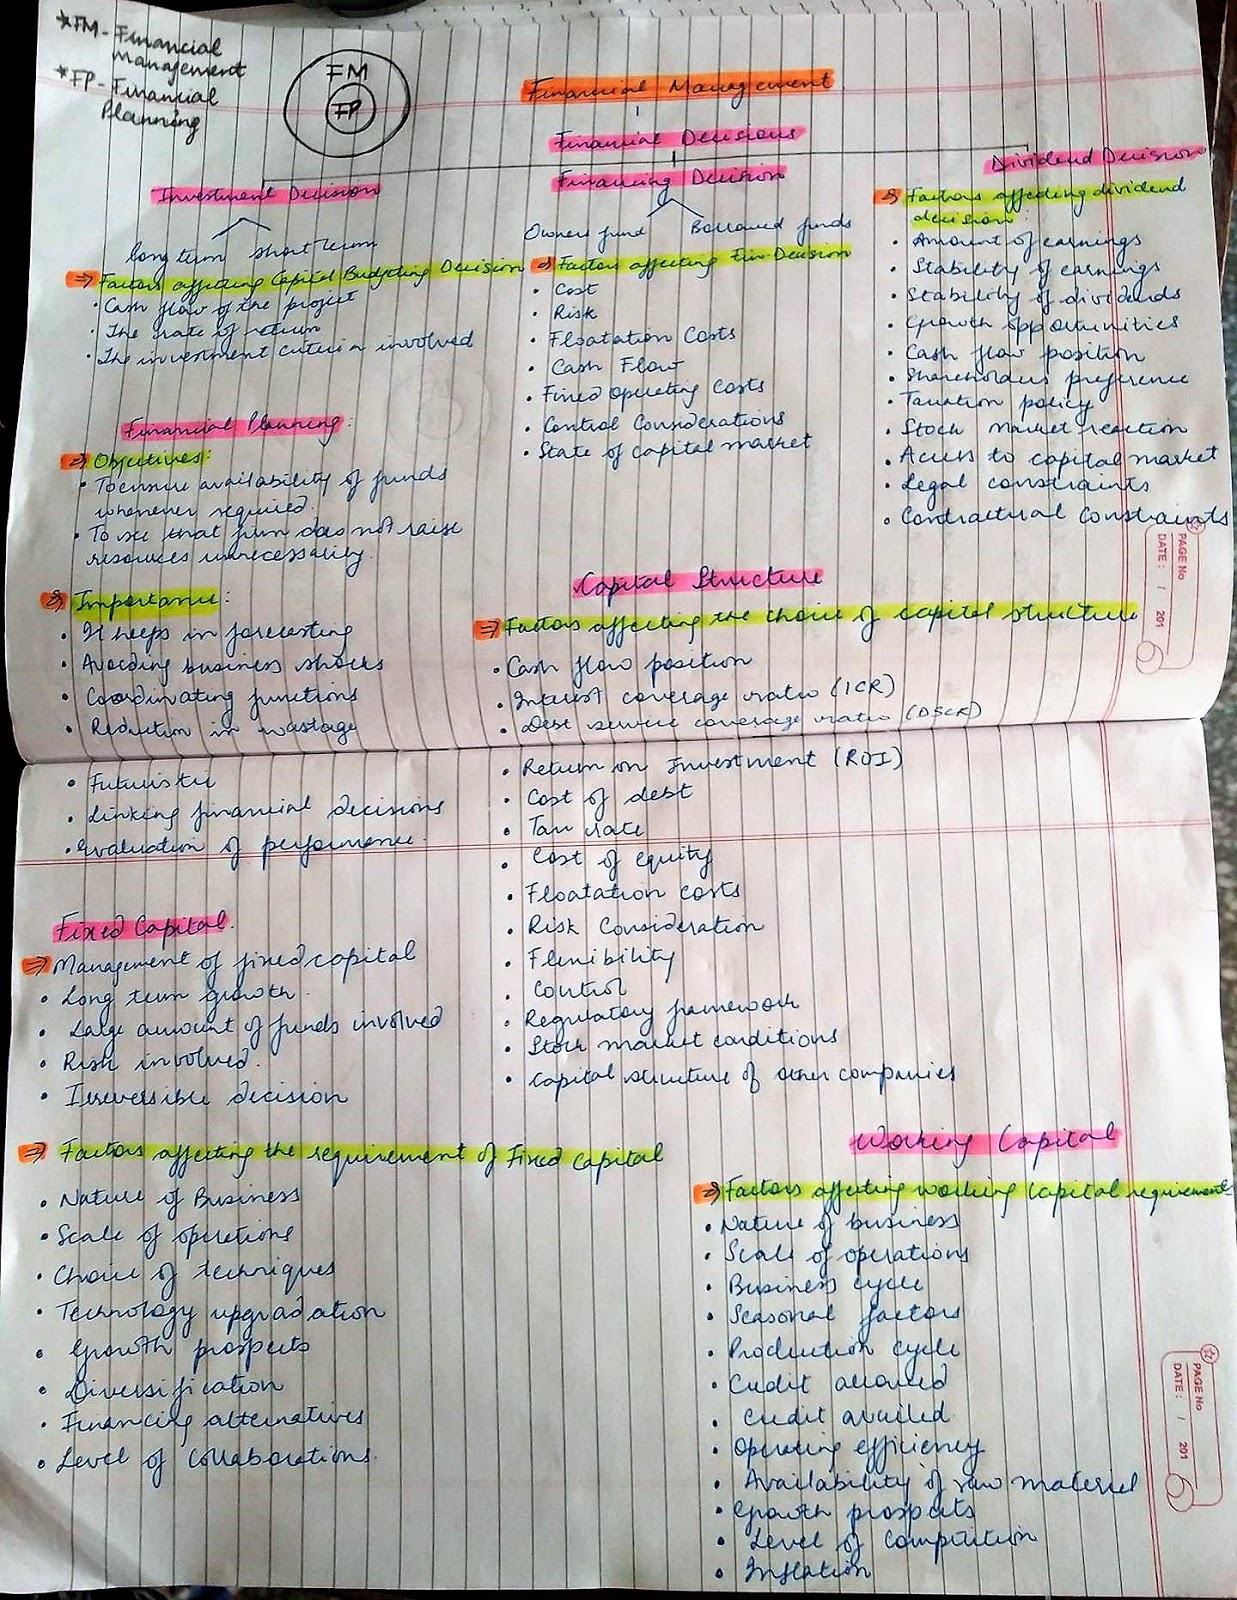 *FM - Financial
Management
*FP - Financial
Planning
FM
FP
Financial Management
Financial Decisions
Investment Decision
long term short term
⇒ Factors affecting Capital Budgeting Decision
• Cash flow of the project
• The rate of return
• The investment criteria involved
Financing Decision
Owners fund Borrowed funds
⇒ Factors affecting Fin. Decision
• Cost
• Risk
• Floatation Costs
• Cash Flow
• Fixed Operating Costs
• Control Considerations
• State of capital market
Dividend Decision
⇒ Factors affecting dividend
decision:
• Amount of earnings
• Stability of earnings
• Stability of dividends
• Growth opportunities
• Cash flow position
• Shareholders preference
• Taxation policy
• Stock market reaction
• Acess to capital market
• Legal constraints
• Contractual constraints
Financial Planning:
⇒ Objectives:
• To ensure availability of funds
whenever required.
• To see that firm does not raise
resources unnecessarily.
⇒ Importance:
• It helps in forecasting
• Avoiding business shocks
• Coordinating functions
• Reduction in wastage
• Futuristic
• Linking financial decisions
• Evaluation of performance.
Capital Structure
⇒ Factors affecting the choice of capital structure
• Cash flow position
• Interest coverage ratio (ICR)
• Debt service coverage ratio (DSCR)
• Return on Investment (ROI)
• Cost of debt
• Tax rate
• Cost of equity
• Floatation costs
• Risk Consideration
• Flexibility
• Control
• Regulatory framework
• Stock market conditions
• Capital structure of other companies
PAGE No
DATE: / / 201
Fixed Capital.
⇒ Management of fixed capital
• Long term growth.
• Large amount of funds involved
• Risk involved.
• Irreversible decision
⇒ Factors affecting the requirement of Fixed Capital
• Nature of Business
• Scale of operations
• Choice of techniques
• Technology upgradation
• Growth prospects
• Diversification
• Financing alternatives
• Level of Collaborations.
Working Capital
⇒ Factors affecting working capital requirement
• Nature of business
• Scale of operations
• Business cycle
• Seasonal factors
• Production cycle
• Credit allowed
• Credit availed.
• Operating efficiency
• Availability of raw material
• Growth prospects
• Level of Competition
• Inflation
PAGE No
DATE: / / 201